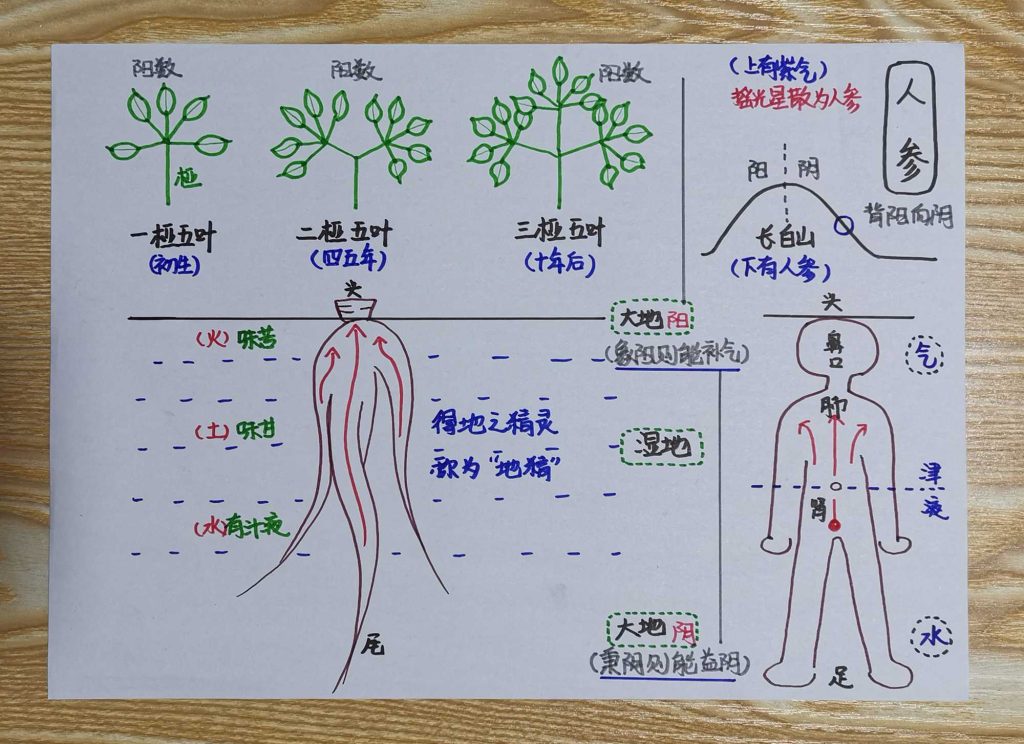 阳数
阳数
阳数
桠
一桠五叶
(初生)
二桠五叶
(四五年)
三桠五叶
(十年后)
(上有紫气)
摇光星散为人参
人参
阳
阴
背阳向阴
长白山
(下有人参)
头
大地阳
(象阳则能补气)
(火)味苦
(土)味甘
(水)有汁液
得地之精灵
称为“地精”
湿地
大地阴
(秉阴则能益阴)
尾
头
鼻
口
气
肺
肾
津
液
水
足